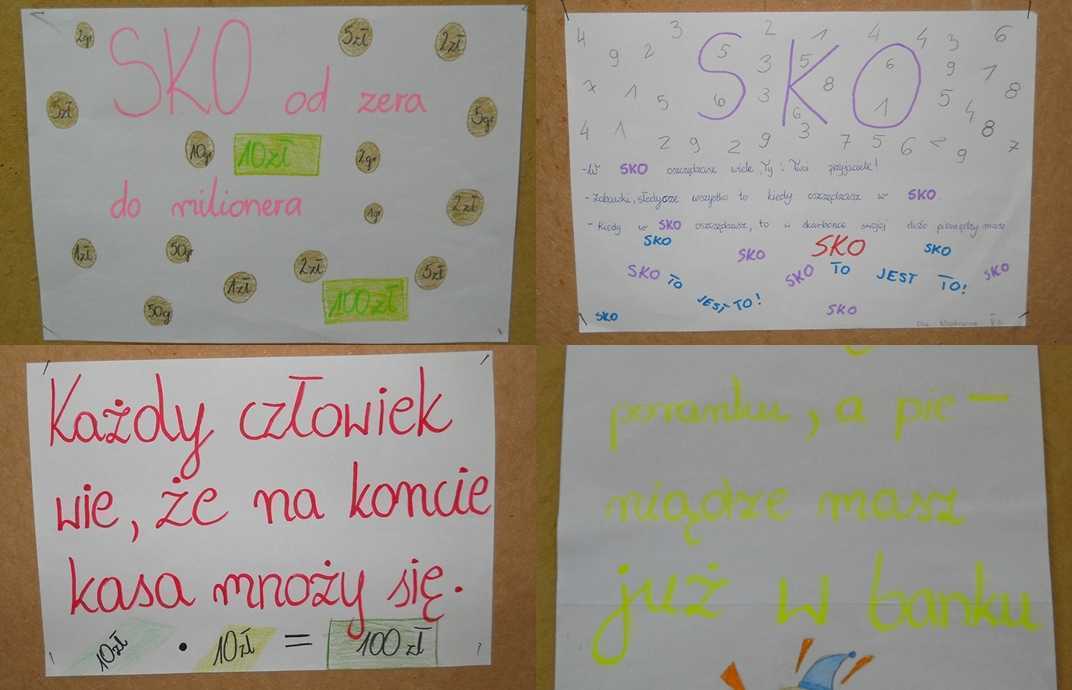 2gr 5zł 2zł
SKO od zera
5zł 5gr
10gr 10zł 2gr
do milionera
1gr 2zł
1zł 50gr 2zł 5zł
1zł 100zł
50g
4 9 2 3 2 1 4 4 3 6
SKO
5 3 5 6 9 1 8
7 1 5 6 3 8 6 1 5 4
4 1 2 9 2 9 3 7 5 6 2 9 8 7
-W SKO oszczędzasz wiele, Ty i Twoi przyjaciele!
- Zabawki, słodycze wszystko to kiedy oszczędzasz w SKO.
- Kiedy w SKO oszczędzasz, to w skarbonce swojej dużo pieniędzy masz
SKO SKO SKO SKO
SKO TO SKO TO JEST TO! SKO
JEST TO!
SKO SKO
Każdy człowiek
wie, że na koncie
kasa mnoży się.
10zł • 10zł = 100zł
poranku, a pie-
niądze masz
już w banku